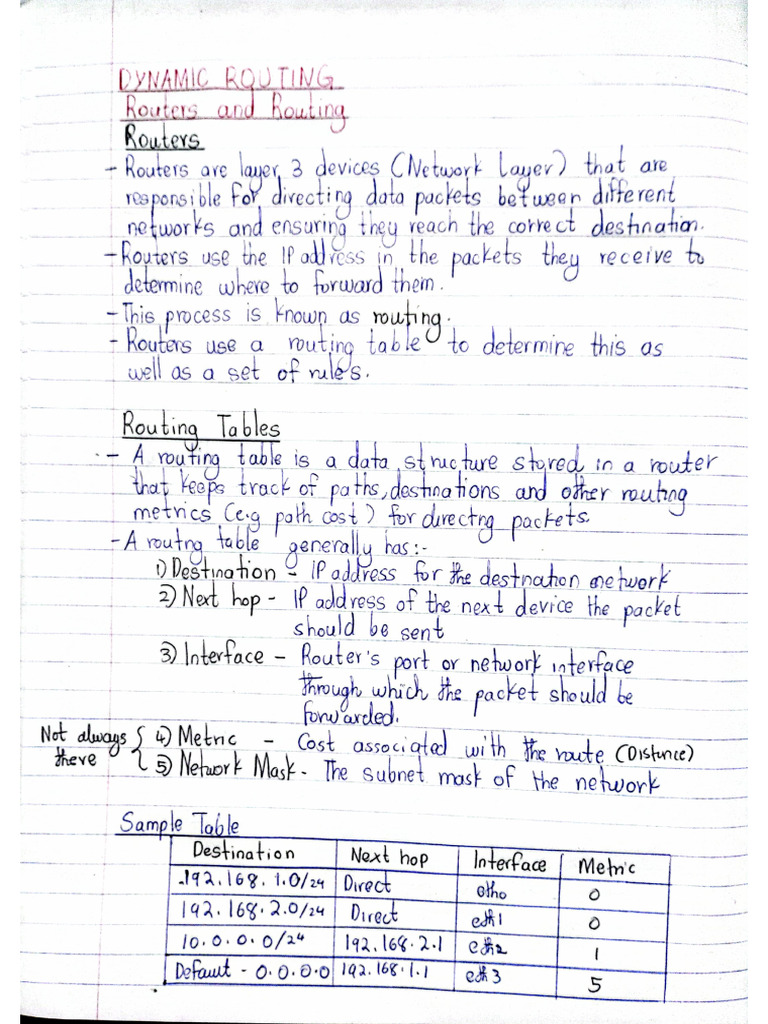 DYNAMIC ROUTING
Routers and Routing
Routers
- Routers are layer 3 devices (Network Layer) that are
responsible for directing data packets between different
networks and ensuring they reach the correct destination.
- Routers use the IP address in the packets they receive to
determine where to forward them.
- This process is known as routing.
- Routers use a routing table to determine this as
well as a set of rules.
Routing Tables
- A routing table is a data structure stored in a router
that keeps track of paths, destinations and other routing
metrics (e.g path cost) for directng packets.
- A routng table generally has:-
1) Destination - IP address for the destination network
2) Next hop - IP address of the next device the packet
should be sent
3) Interface - Router's port or network interface
through which the packet should be
forwarded.
Not always { 4) Metric - Cost associated with the route (Distance)
there { 5) Network Mask - The subnet mask of the network
Sample Table
Destination Next hop Interface Metric
192.168.1.0/24 Direct eth0 0
192.168.2.0/24 Direct eth1 0
10.0.0.0/24 192.168.2.1 eth2 1
Default - 0.0.0.0 192.168.1.1 eth3 5